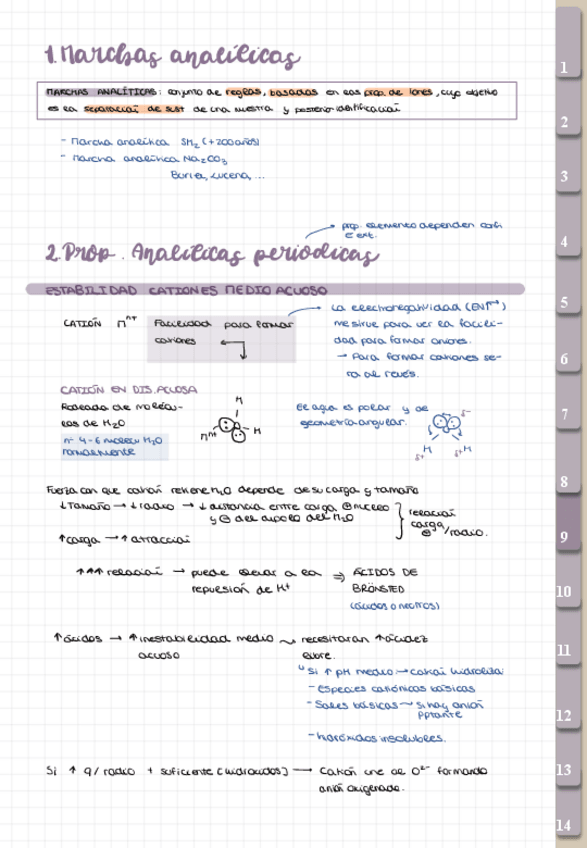 1. Marchas analíticas
MARCHAS ANALÍTICAS: conjunto de reglas, basadas en las prop. de iones, cuyo objetivo
es la separación de sust de una muestra y posterior identificación
- Marcha analítica SH2 (+200 años)
- Marcha analítica Na2CO3
Buriel, Lucena, ...
prop. elemento dependen confi
e ext.
2. Prop. Analíticas periodicas
ESTABILIDAD CATIONES MEDIO ACUOSO
CATIÓN Mn+
Facilidad para formar
cationes
La electronegatividad (EN↑→)
me sirve para ver la facili-
dad para formar aniones.
→ Para formar cationes se-
ra al revés.
CATIÓN EN DIS. ACUOSA
Rodeada de molécu-
las de H2O
nº 4-6 molécu H2O
normalmente
H
Mn+
H
El agua es polar y de
geometría angular.
δ-
H
H
δ+
δ+
Fuerza con que catión retiene H2O depende de su carga y tamaño
↓Tamaño → ↓radio → ↓distancia entre carga ⊕núcleo
y ⊖ del dipolo del H2O
↑carga → ↑atracción
relación
carga
⊕/radio.
↑↑↑ relación → puede llevar a la
repulsión de H+
⇒ ÁCIDOS DE
BRÖNSTED
(ácidos o neutros)
↑ácidos → ↑inestabilidad medio
acuoso
necesitaran ↑acidez
libre.
Si ↑ pH medio → catión hidroliza:
- especies catiónicas básicas
- Sales básicas ~ Si hay anión
pptante
- hidróxidos insolubles.
Si ↑ q/radio + suficiente (hidroxidos) → Catión une al O2- formando
anión oxigenado.
1
2
3
4
5
6
7
8
9
10
11
12
13
14